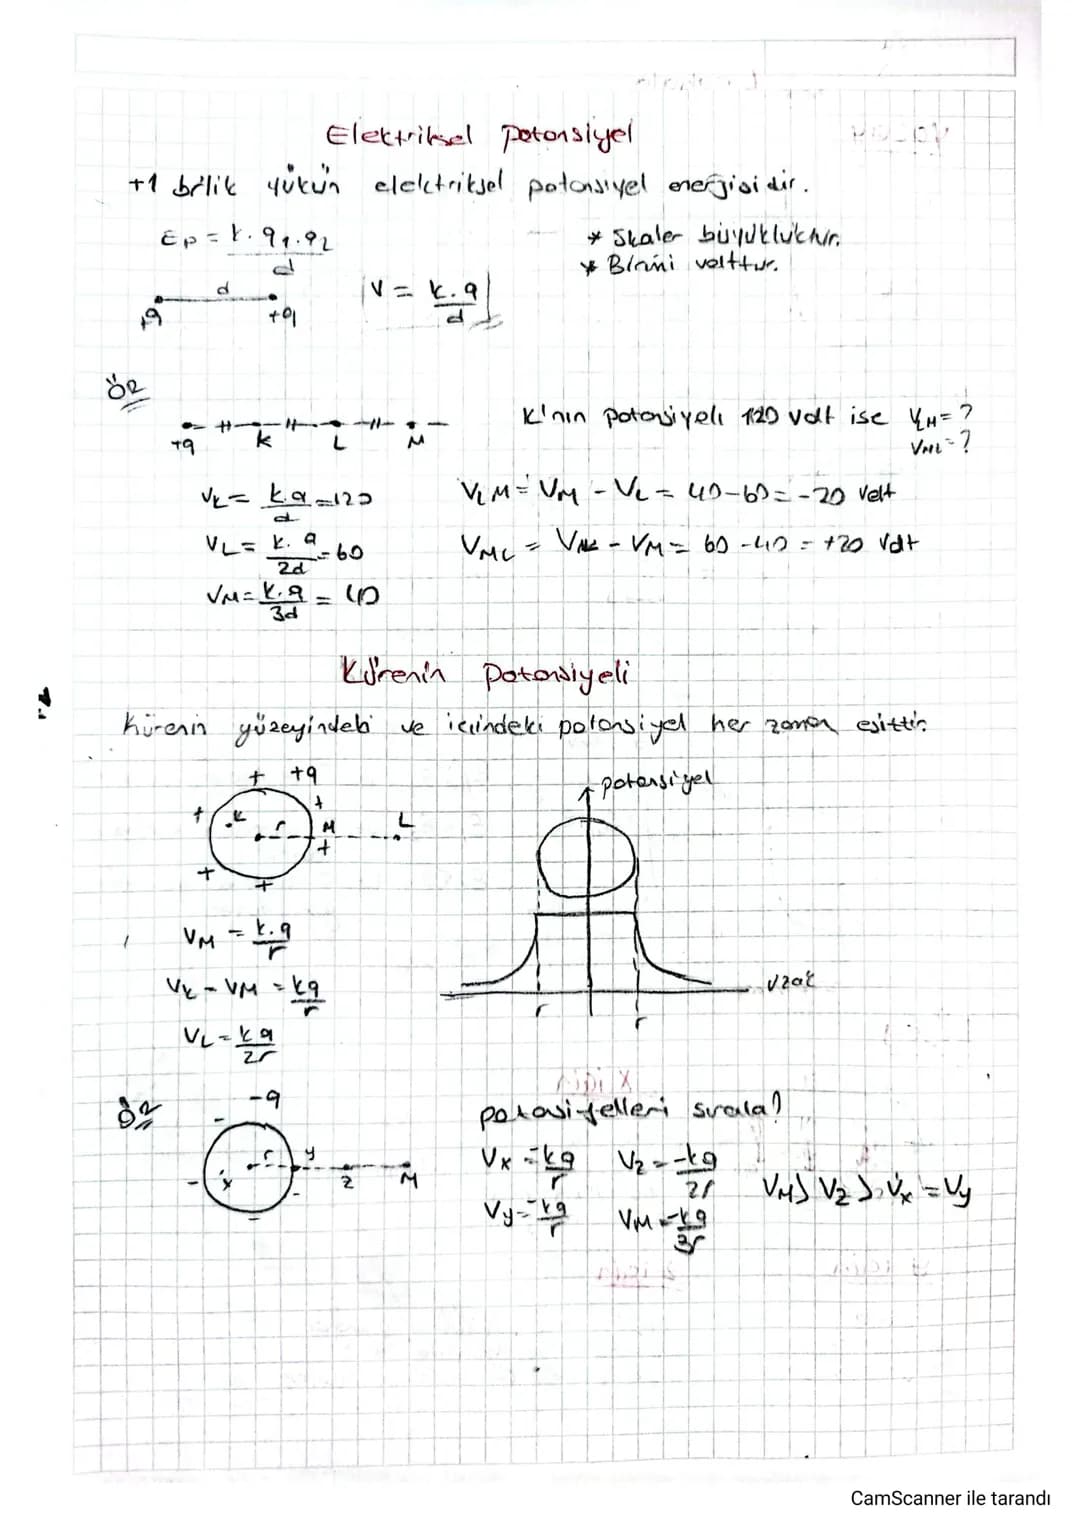 Elektriksel Potansiyel
+1 birlik yükün elektriksel potansiyel enerjisidir.
Ep = k.q1.q2 / d
* Skaler büyüklüktür.
* Birimi volttur.
d
+q +q
V = k.q / d
Ör
+q K L M
K'nın potansiyeli 120 volt ise VLM = ?
VML = ?
VK = k.q / d = 120
VLM = VM - VL = 40-60 = -20 Volt
VL = k.q / 2d = 60
VML = VL - VM = 60-40 = +20 Volt
VM = k.q / 3d = 40
Kürenin Potansiyeli
Kürenin yüzeyindeki ve içindeki potansiyel her zaman eşittir.
+ +q
+ + + + +
K r M L
potansiyel
VM = k.q / r
VK = VM = kq / r
uzak
r r
VL = kq / 2r
Ör
-q
- - - -
x r y z M
potansiyelleri sırala?
Vx = -kq / r Vz = -kq / 2r
Vy = -kq / r VM = -kq / 3r
VM > Vz > Vx = Vy
CamScanner ile tarandı